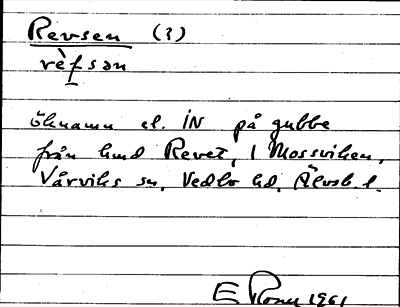 Revsen (?)
rèfsən
öknamn el. IN på gubbe
från hmd Revet, i Mossviken,
Vårviks sn, Vedbo hd, Älvsb. l.
E Rosell 1961